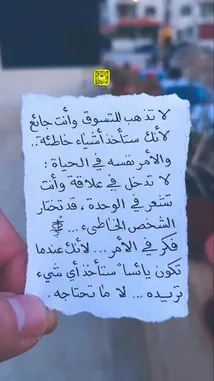 لا تذهب للتسوق وأنت جائع
لأنك ستأخذ أشياء خاطئة..
والأمر نفسه في الحياة :
لا تدخل في علاقة وأنت
تشعر في الوحدة ، قد تختار
الشخص الخاطىء ...
فكر في الأمر ... لأنك عندما
تكون يائساً ستأخذ أي شيء
تريده ... لا ما تحتاجه .